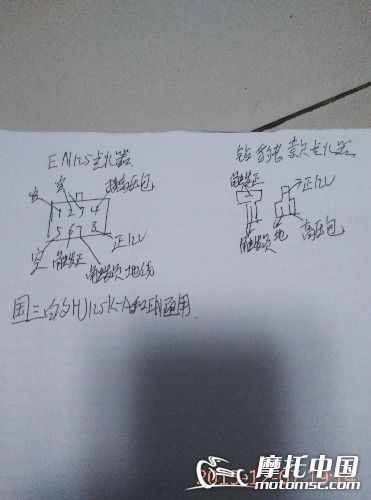 EN125点火器
钻豹款点火器
空
空
接高压包
1 2 3 4
5 6 7 8
空
触发正
触发负
地线
正12V
触发正
正12V
触发负
地
高压包
国三的HJ125K-A和EN通用
摩托中国
motomsc.com